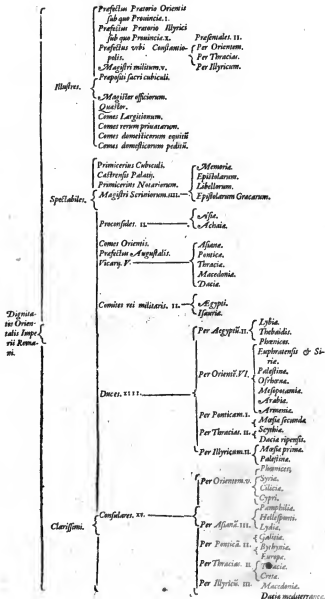 Præfectus Pratorio Orientis
sub quo Prouinciæ. I.
Præfectus Pratorio Illyrici
sub quo Prouinciæ. X.
Præfectus vrbi Constantio-
polis.
Magistri militum. V.
Præsentales. II.
Per Orientem.
Per Thracias.
Per Illyricum.
Præpositi sacri cubiculi.
Illustres.
Magister officiorum.
Quæstor.
Comes Largitionum.
Comes rerum priuatarum.
Comes domesticorum equitū
Comes domesticorum peditū.
Primicerius Cubiculi.
Castrensis Palatij.
Primicerius Notariorum.
Spectabiles. Magistri Scriniorum. IIII.
Memoriæ.
Epistolarum.
Libellorum.
Epistolarum Græcarum.
Proconsules. II.
Asiæ.
Achaiæ.
Comes Orientis.
Præfectus Augustalis.
Vicarij. V.
Asianæ.
Pontica.
Thraciæ.
Macedoniæ.
Daciæ.
Comites rei militaris. II.
Ægypti.
Isauriæ.
Dignita-
tis Orien-
talis Impe-
rii Roma-
ni.
Duces. XIII.
Per Aegyptū. II.
Lybiæ.
Thebaidis.
Per Oriente. VI.
Phœnices.
Euphratensis & Si-
riæ.
Palestinæ.
Osrhoenæ.
Mesopotamiæ.
Arabiæ.
Per Ponticam. I.
Armeniæ.
Per Thracias. II.
Mœsiæ secundæ
Scythiæ.
Per Illyricum. II.
Dacia ripensis.
Mœsiæ primæ.
Clarissimi.
Consulares. XV.
Per Orientem. V.
Palestinæ.
Phœnices,
Syriæ.
Ciliciæ.
Cypri.
Per Asianā. III.
Pamphiliæ.
Hellesponti.
Lydiæ.
Per Ponticā. II.
Galatiæ.
Bythyniæ.
Per Thracias. II
Europæ.
Thraciæ.
Per Illyricū. III.
Cretæ.
Macedoniæ.
Dacia mediterraneæ.